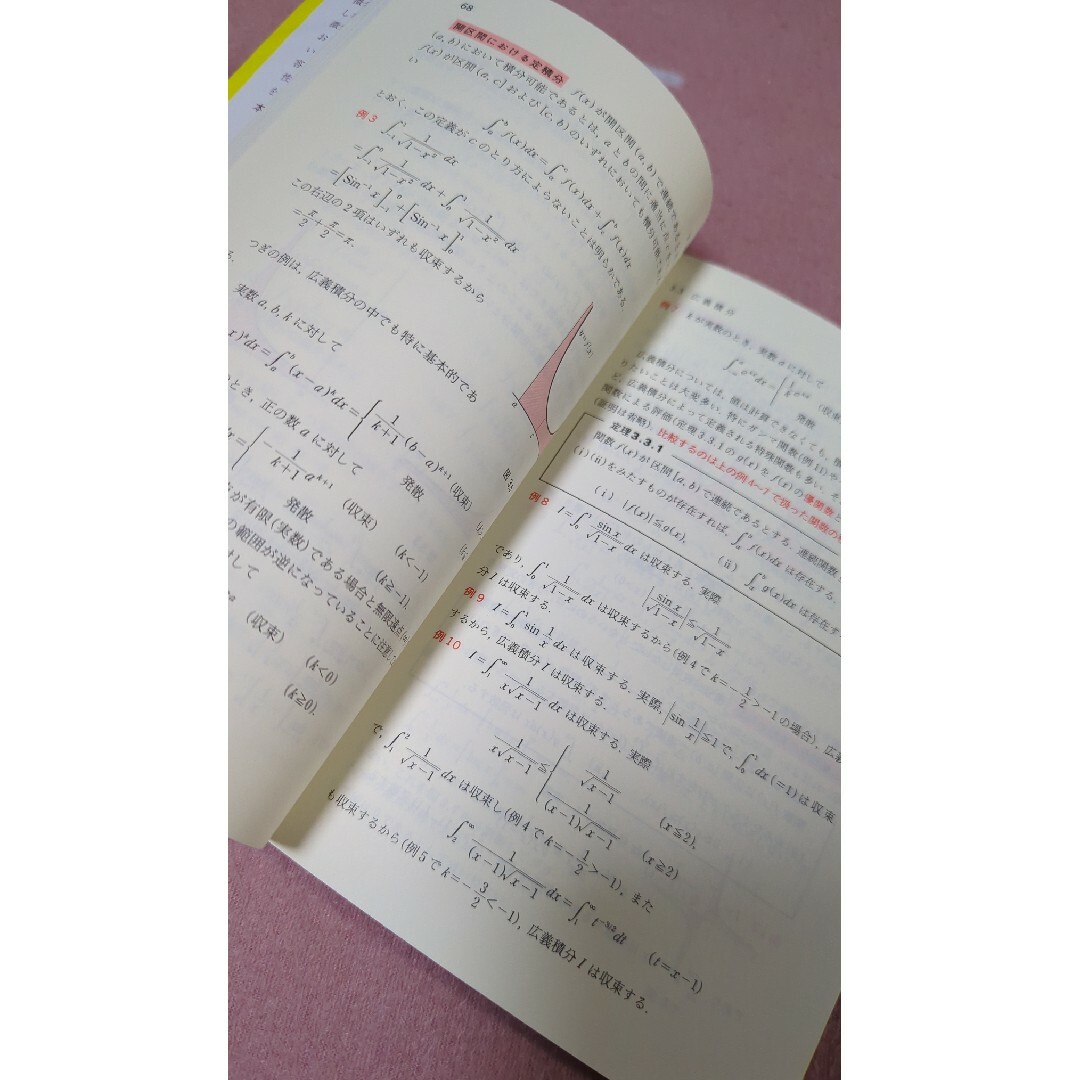 68
開区間における定積分 f(x)が開区間(a, b)で連続であるとき,
(a, b)において積分可能であるとは, aとbの間に適当に
f(x)が区間(a, c]および[c, b)のいずれにおいても積分可能
い
∫_a^b f(x)dx=∫_a^c f(x)dx+∫_c^b f(x)dx
とおく. この定義がcのとり方によらないことは明らかである.
例3 ∫_{-1}^1 1/√(1-x²) dx
=∫_{-1}^0 1/√(1-x²) dx+∫_0^1 1/√(1-x²) dx
=[Sin⁻¹x]_{-1}^0+[Sin⁻¹x]_0^1
この右辺の2項はいずれも収束するから
=π/2+π/2=π.
つぎの例は, 広義積分の中でも特に基本的であ
る.
実数a, b, kに対して
x)^k dx=∫_a^b (x-a)^k dx={ 1/(k+1) (b-a)^{k+1} (収束)
発散
のとき, 正の数aに対して
dx={ -1/(k+1) a^{k+1} (収束) (k<-1)
発散 (k≧-1).
が有限(実数)である場合と無限遠点
の範囲が逆になっていることに注意
対して
(収束) (k<0)
(k≧0).
y=f(x)
a
c
広義積分
例7 kが実数のとき, 実数aに対して
発散
広義積分については, 値は計算できなくても,
りたいことは大変多い. 特にガンマ関数(例11)や
ど, 広義積分によって定義される特殊関数も多い. そ
関数による評価(定理3.3.1のg(x)をf(x)の優関数と
(証明は省略). 比較するのは上の例4~7で扱った関数の
定理3.3.1
関数f(x)が区間[a, b)で連続であるとする. 連続関数
(i)(ii)をみたすものが存在すれば, ∫_a^b f(x)dxは存在する.
(i) |f(x)|≦g(x), (ii) ∫_a^b g(x)dxは存在す
例8 I=∫_0^1 sin x/√(1-x) dxは収束する. 実際
|sin x/√(1-x)|≦1/√(1-x)
であり, ∫_0^1 1/√(1-x) dxは収束するから(例4でk=-1/2>-1の場合), 広義
分Iは収束する.
例9 I=∫_0^1 sin 1/x dxは収束する. 実際, |sin 1/x|≦1で, ∫_0^1 dx(=1)は収束
するから, 広義積分Iは収束する.
例10 I=∫_1^∞ 1/(x√(x-1)) dxは収束する. 実際
1/(x√(x-1))≦{ 1/√(x-1) (x≦2),
1/((x-1)√(x-1)) (x≧2)
で, ∫_1^2 1/√(x-1) dxは収束し(例4でk=-1/2>-1), また
∫_2^∞ 1/((x-1)√(x-1)) dx=∫_1^∞ t^{-3/2}dt (t=x-1)
も収束するから(例5でk=-3/2<-1), 広義積分Iは収束する.